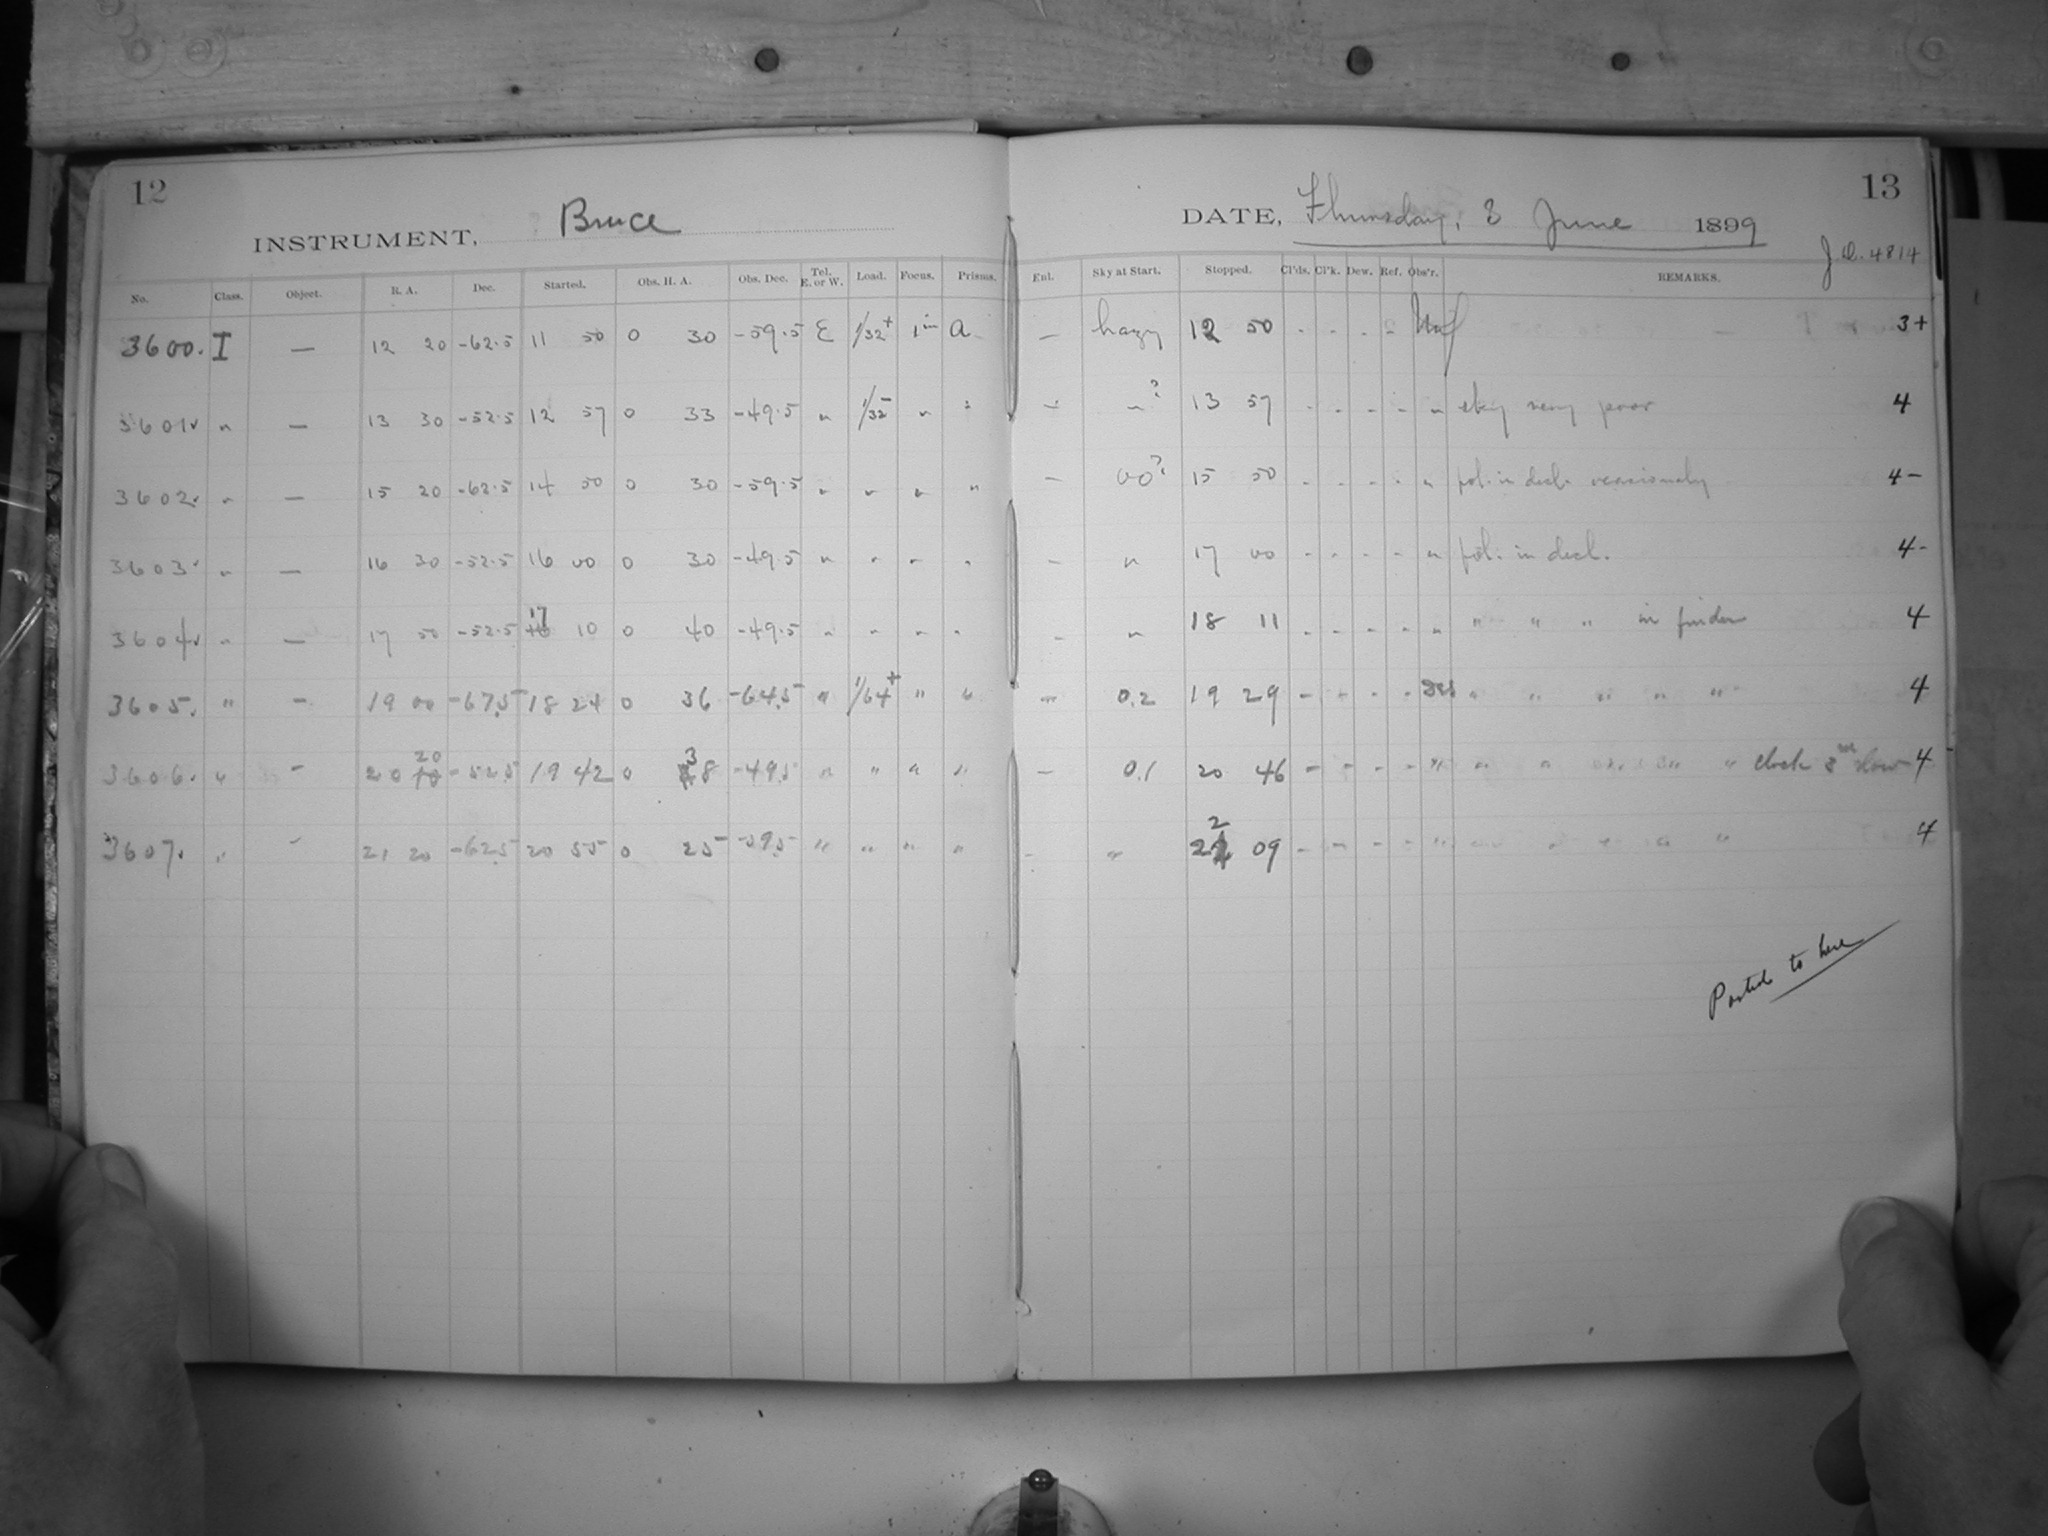 12
INSTRUMENT, Bruce
No. Class. Object. R. A. Dec. Started. Obs. H. A. Obs. Dec. Tel. E. or W. Load. Focus. Prisms.
3600. I — 12 20 -62.5 11 50 0 30 -59.5 E 1/32+ 1in A
3601 " — 13 30 -52.5 12 57 0 33 -49.5 " 1/32- " "
3602 " — 15 20 -62.5 14 50 0 30 -59.5 " " " "
3603 " — 16 30 -52.5 16 00 0 30 -49.5 " " " "
3604 " — 17 50 -52.5 17 10 0 40 -49.5 " " " "
3605. " — 19 00 -67.5 18 24 0 36 -64.5 " 1/64+ " "
3606. " — 20 20 -52.5 19 42 0 38 -49.5 " " " "
3607. " — 21 20 -62.5 20 55 0 25 -59.5 " " " "
13
DATE, Thursday, 8 June 1899
J.D. 4814
Enl. Sky at Start. Stopped. Cl'ds. Cl'k. Dew. Ref. Obs'r. REMARKS.
— hazy 12 50 - - - 3+
— "? 13 57 - - - - " sky very poor 4
— 00? 15 50 - - - - " pol. in decl. occasionally 4-
— " 17 00 - - - - " pol. in decl. 4-
— " 18 11 - - - - " " " " in finder 4
— 0.2 19 29 - - - - " " " " " 4
— 0.1 20 46 - - - - " " " " " clock 3m slow 4
— " 22 09 - - - - " " " " " " 4
Posted to here